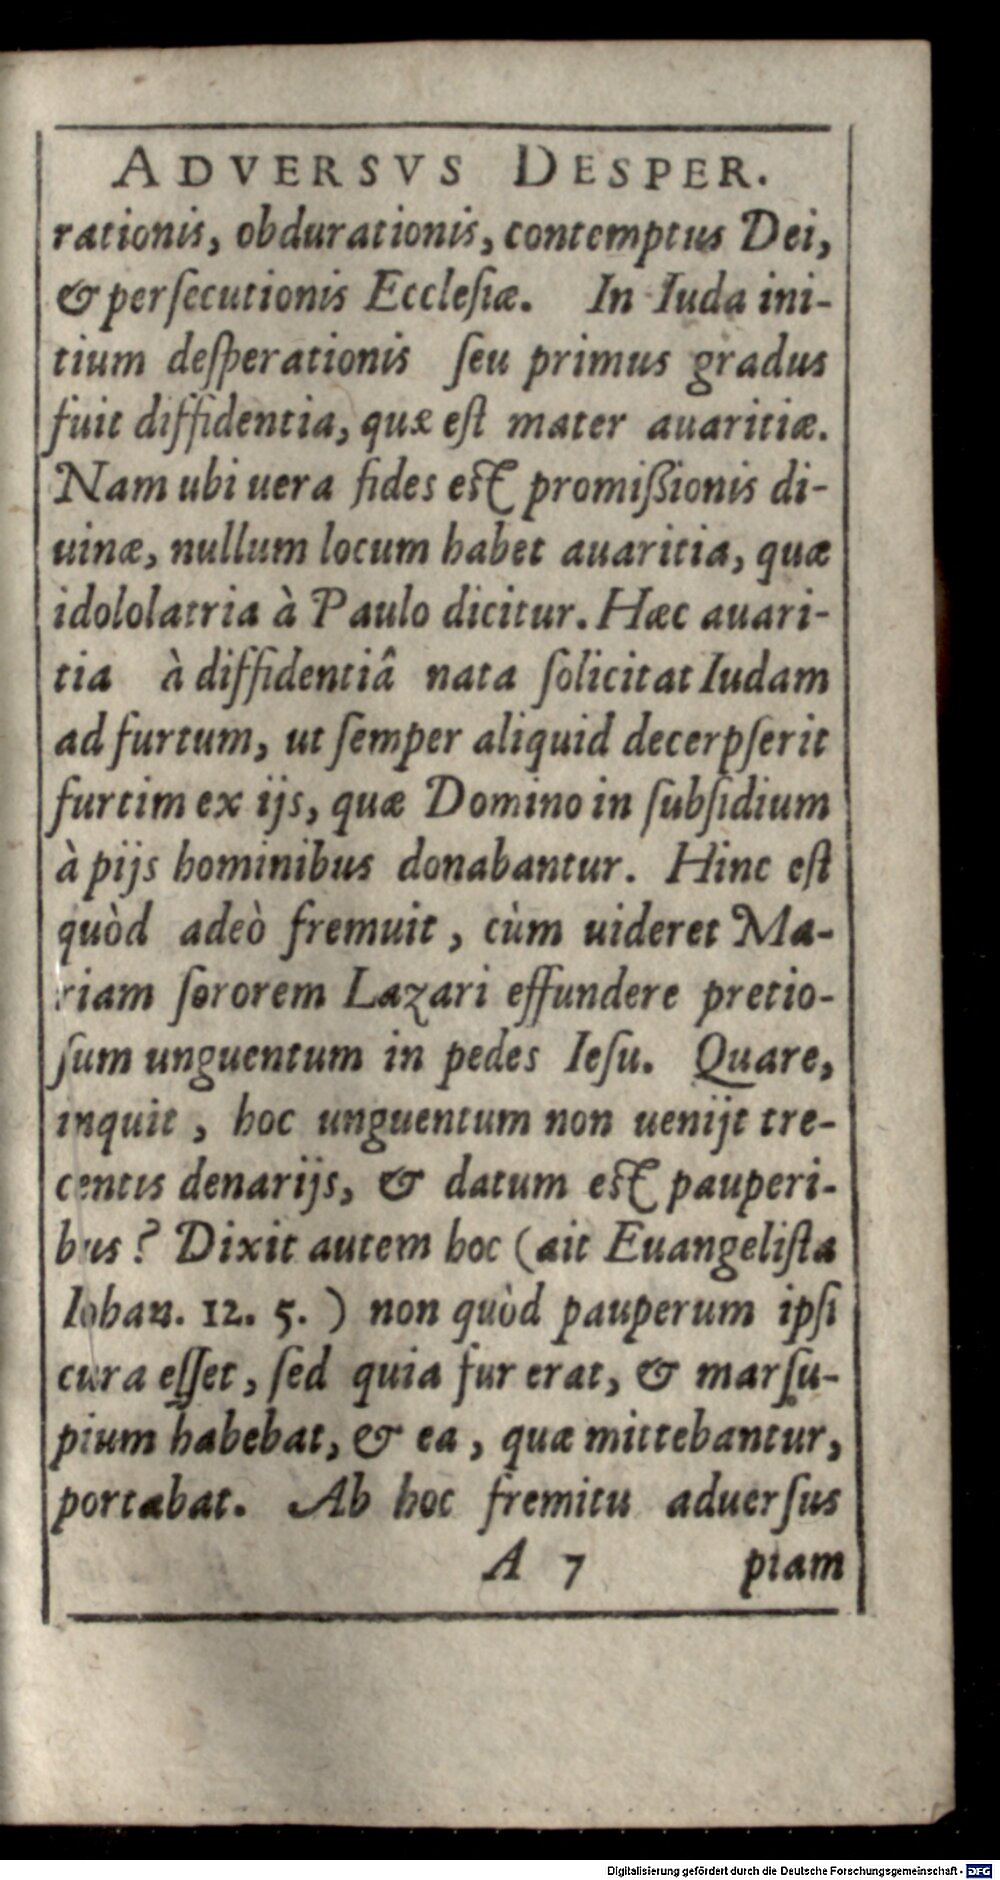 ADVERSVS DESPER.
rationis, obdurationis, contemptus Dei,
& perſecutionis Eccleſiæ. In Iuda ini-
tium deſperationis ſeu primus gradus
fuit diffidentia, quæ eſt mater auaritiæ.
Nam ubi uera fides eſt promißionis di-
uinæ, nullum locum habet auaritia, quæ
idololatria à Paulo dicitur. Hæc auari-
tia à diffidentiâ nata ſolicitat Iudam
ad furtum, ut ſemper aliquid decerpſerit
furtim ex ijs, quæ Domino in ſubſidium
à pijs hominibus donabantur. Hinc eſt
quòd adeò fremuit, cùm uideret Ma-
riam ſororem Lazari effundere pretio-
ſum unguentum in pedes Ieſu. Quare,
inquit, hoc unguentum non uenijt tre-
centis denarijs, & datum eſt pauperi-
bus? Dixit autem hoc (ait Euangeliſta
Iohan. 12. 5.) non quòd pauperum ipſi
cura eſſet, ſed quia fur erat, & marſu-
pium habebat, & ea, quæ mittebantur,
portabat. Ab hoc fremitu aduerſus
A 7 piam
Digitalisierung gefördert durch die Deutsche Forschungsgemeinschaft - DFG